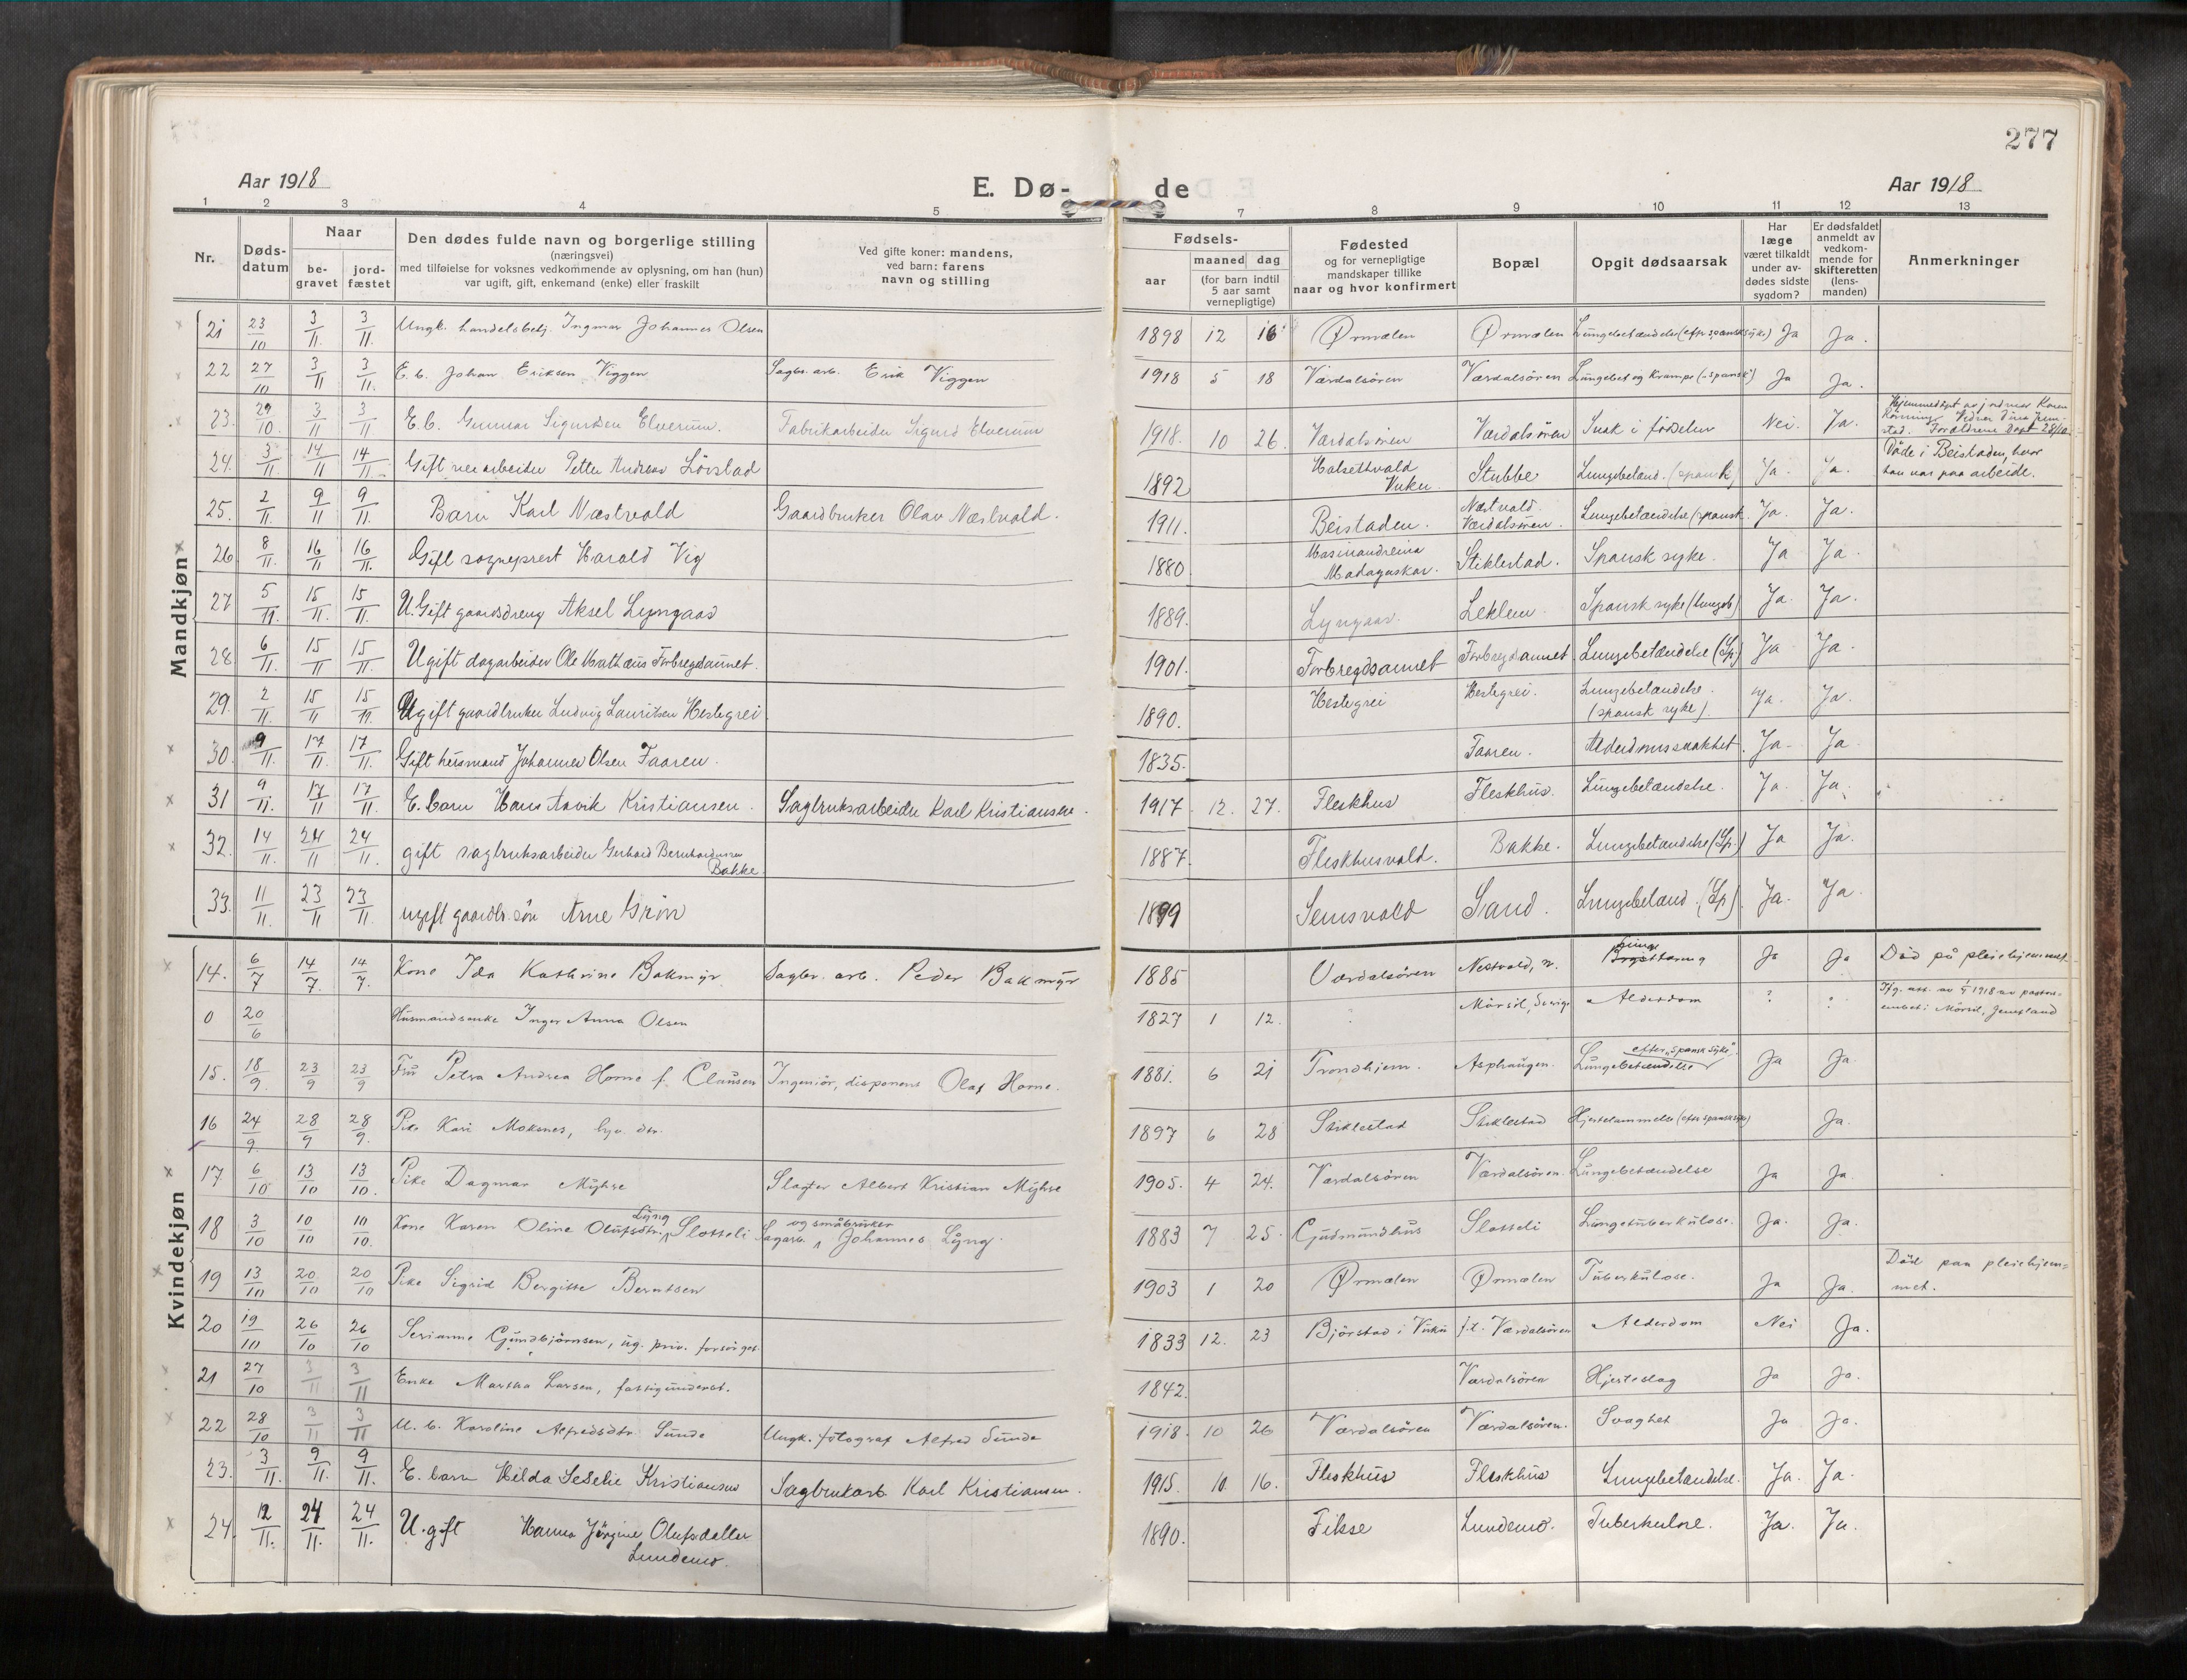 277
Aar 1918
E. Dø-
de
Aar 1918
1 2 3 4 5 7 8 9 10 11 12 13
Nr.
Døds-
datum
Naar
be-
gravet
jord-
fæstet
Den dødes fulde navn og borgerlige stilling
(næringsvei)
med tilføielse for voksnes vedkommende av oplysning, om han (hun)
var ugift, gift, enkemand (enke) eller fraskilt
Ved gifte koner: mandens,
ved barn: farens
navn og stilling
Fødsels-
aar
maaned dag
(for barn indtil
5 aar samt
vernepligtige)
Fødested
og for vernepligtige
mandskaper tillike
naar og hvor konfirmert
Bopæl
Opgit dødsaarsak
Har
læge
været tilkaldt
under av-
dødes sidste
sygdom?
Er dødsfaldet
anmeldt av
vedkom-
mende for
skifteretten
(lens-
manden)
Anmerkninger
Mandkjøn
21 23/10 3/11. 3/11. Ungk. handelsbetj. Ingmar Johannes Olsen 1898 12 16 Ørmælen Ørmælen Lungebetændelse (efter spansk syke) Ja Ja.
22 27/10 3/11 3/11. E. b. Johan Eriksen Viggen Sagbr. arb. Erik Viggen 1918 5 18 Værdalsøren Værdalsøren Lungebet. og Krampe ("spansk") Ja Ja.
23. 29/10. 3/11 3/11 E. b. Gunnar Sigurdsen Elverum. Fabrikarbeider Sigurd Elverum 1918. 10 26. Værdalsøren Værdalsøren Svak i fødselen Nei. Ja. Hjemmedøpt av jordmor Karen
24. 3/11 14/11 14/11. Gift veiarbeider Petter Andreas Lövstad 1892 Halsethvald Vuku. Stubbe Lungebetænd. (spansk) Ja. Ja. Döde i Beistaden, hvor
han var paa arbeide.
25. 2/11. 9/11 9/11. Barn Karl Næstvold Gaardbruker Olav Næstvold. 1911. Beistaden. Næstvold. Værdalsøren. Lungebetændelse (spansk. Ja. Ja.
26 8/11. 16/11 16/11. Gift sogneprest Harald Vig 1880 Masinandreina Madagaskar. Stiklestad. Spansk syke. Ja Ja.
27 5/11. 15/11. 15/11. U. Gift gaardsdreng Aksel Lyngaas 1889. Lyngaas. Leklem. Spansk syke (Lungeb) Ja. Ja.
28. 6/11. 15/11 15/11. Ugift dagarbeider Ole Mathæus Forbregdsaunet. 1901. Forbregdsaunet Forbregdsaunet Lungebetændelse (Sp.) Ja Ja.
29. 2/11. 15/11 15/11. Ugift gaardbruker Ludvig Lauritsen Hestegrei 1890. Hestegrei Hestegrei. Lungebetændelse. (spansk syke). Ja. Ja.
30. 9/11. 17/11. 17/11. Gift husmand Johannes Olsen Faaren. 1835. Faaren. Alderdomssvakhet. Ja. Ja.
31 9/11. 17/11 17/11. E. barn Hans Arvik Kristiansen. Sagbruksarbeider Karl Kristiansen. 1917 12. 27. Fleskhus Fleskhus. Lungebetændelse. Ja. Ja.
32. 14/11. 24/11 24/11. gift sagbruksarbeider Gerhard Bernhardsen Bakke 1887. Fleskhusvald. Bakke. Lungebetændelse (Sp.) Ja Ja.
33. 11/11. 23/11 23/11. ugift gaardbr. søn Arne Grön 1899 Semsvald Sand. Lungebetænd. (Sp). Ja. Ja.
Kvindekjøn
14. 6/7 14/7. 14/7. Kone Ida Kathrine Bakmyr. Sagbr. arb. Peder Bakmyr 1885 Værdalsøren Nestvold, v. Lungetæring Ja Ja Död på pleiehjemmet.
0 20/6 Husmandsenke Inger Anna Olsen 1827 1 12. Mörsil, Sverige Alderdom ? ? Ifg. att. av 1918 av pastors-
embet i Mörsil, Jemtland
15. 18/9. 23/9 23/9 Fru Petra Andrea Horne f. Clausen Ingeniör, disponent Olaf Horne. 1881. 6 21 Trondhjem. Asphaugen. Lungebetændelse efter "spansk syke". Ja Ja.
16 24/9. 28/9 28/9. Pike Kari Mokenes, 1897 6 28 Stiklestad Stiklestad Hjertelammelse (efter spansk syke) Ja.
17. 6/10 13/10 13/10. Pike Dagmar Myhre Slagter Albert Kristian Myhre 1905. 4 24. Værdalsøren Værdalsøren. Lungebetændelse Ja Ja.
18 3/10 10/10 10/10. Kone Karen Oline Olufsdtr. Lyng Slotteli Sagarb. og småbruker Johannes Lyng. 1883 7 25. Gudmundhus Slotteli Lungetuberkulose. Ja. Ja.
19 13/10 20/10 20/10 Pike Sigrid Bergitte Berntsen 1903 1 20 Ørmælen Ørmælen Tuberkulose. Ja Ja. Död paa pleiehjem=
met.
20 19/10 26/10 26/10 Serianna Gundbjörnsen, ug. priv. forsörget. 1833 12. 23 Björstad i Vuku f.t. Værdalsøren Alderdom Nei Ja.
21 27/10 3/11 3/11 Enke Martha Larsen, fattigunderst. 1842. Værdalsøren Hjerteslag Ja Ja.
22 28/10 3/11 3/11 U. b. Karoline Alfredsdtr. Sunde Ungk. fotograf Alfred Sunde 1918. 10 26 Værdalsøren Værdalsøren. Svaghet Ja Ja.
23. 3/11. 9/11. 9/11. E. barn Hilda Kristiansen Sagbrukarb. Karl Kristiansen. 1915. 10. 16. Fleskhus Fleskhus Lungebetændelse. Ja. Ja.
24. 12/11. 24/11. 24/11. U. gift Hanna Jörgine Olufsdatter Lundemo. 1890. Fikse Lundemo. Tuberkulose. Ja. Ja.